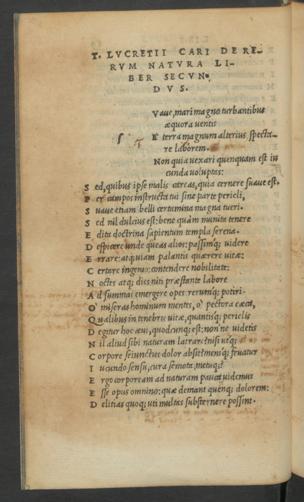 T. LVCRETII CARI DE RE-
RVM NATVRA LI-
BER SECVN-
DVS.
Vaue, mari magno turbantibus
æquora uentis
E terra magnum alterius specta-
re laborem.
Non quia uexari quenquam est iu
cunda uoluptas:
S ed, quibus ipse malis careas, quia cernere suaue est.
P er campos instructa tui sine parte pericli,
S uaue etiam belli certamina magna tueri.
S ed nil dulcius est: bene quàm munita tenere
E dita doctrina sapientum templa serena.
D espicere unde queas alios: passimq; uidere
E rrare: atq; uiam palantis quærere uitæ:
C ertare ingenio: contendere nobilitate:
N octes atq; dies niti præstante labore
A d summas emergere opes rerumq; potiri.
O miseras hominum mentes, ô pectora cæca,
Q ualibus in tenebris uitæ, quantisq; periclis
D egitur hoc æui, quodcunq; est: non ne uidetis
N il aliud sibi naturam latrare: nisi utq;
C orpore seiunctus dolor absit: mensq; fruatur
I ucundo sensu, cura semota, metuq;?
E rgo corpoream ad naturam pauca uidemus
E sse opus omnino: quæ demant quenq; dolorem:
D elitias quoq; uti multas substernere possint.